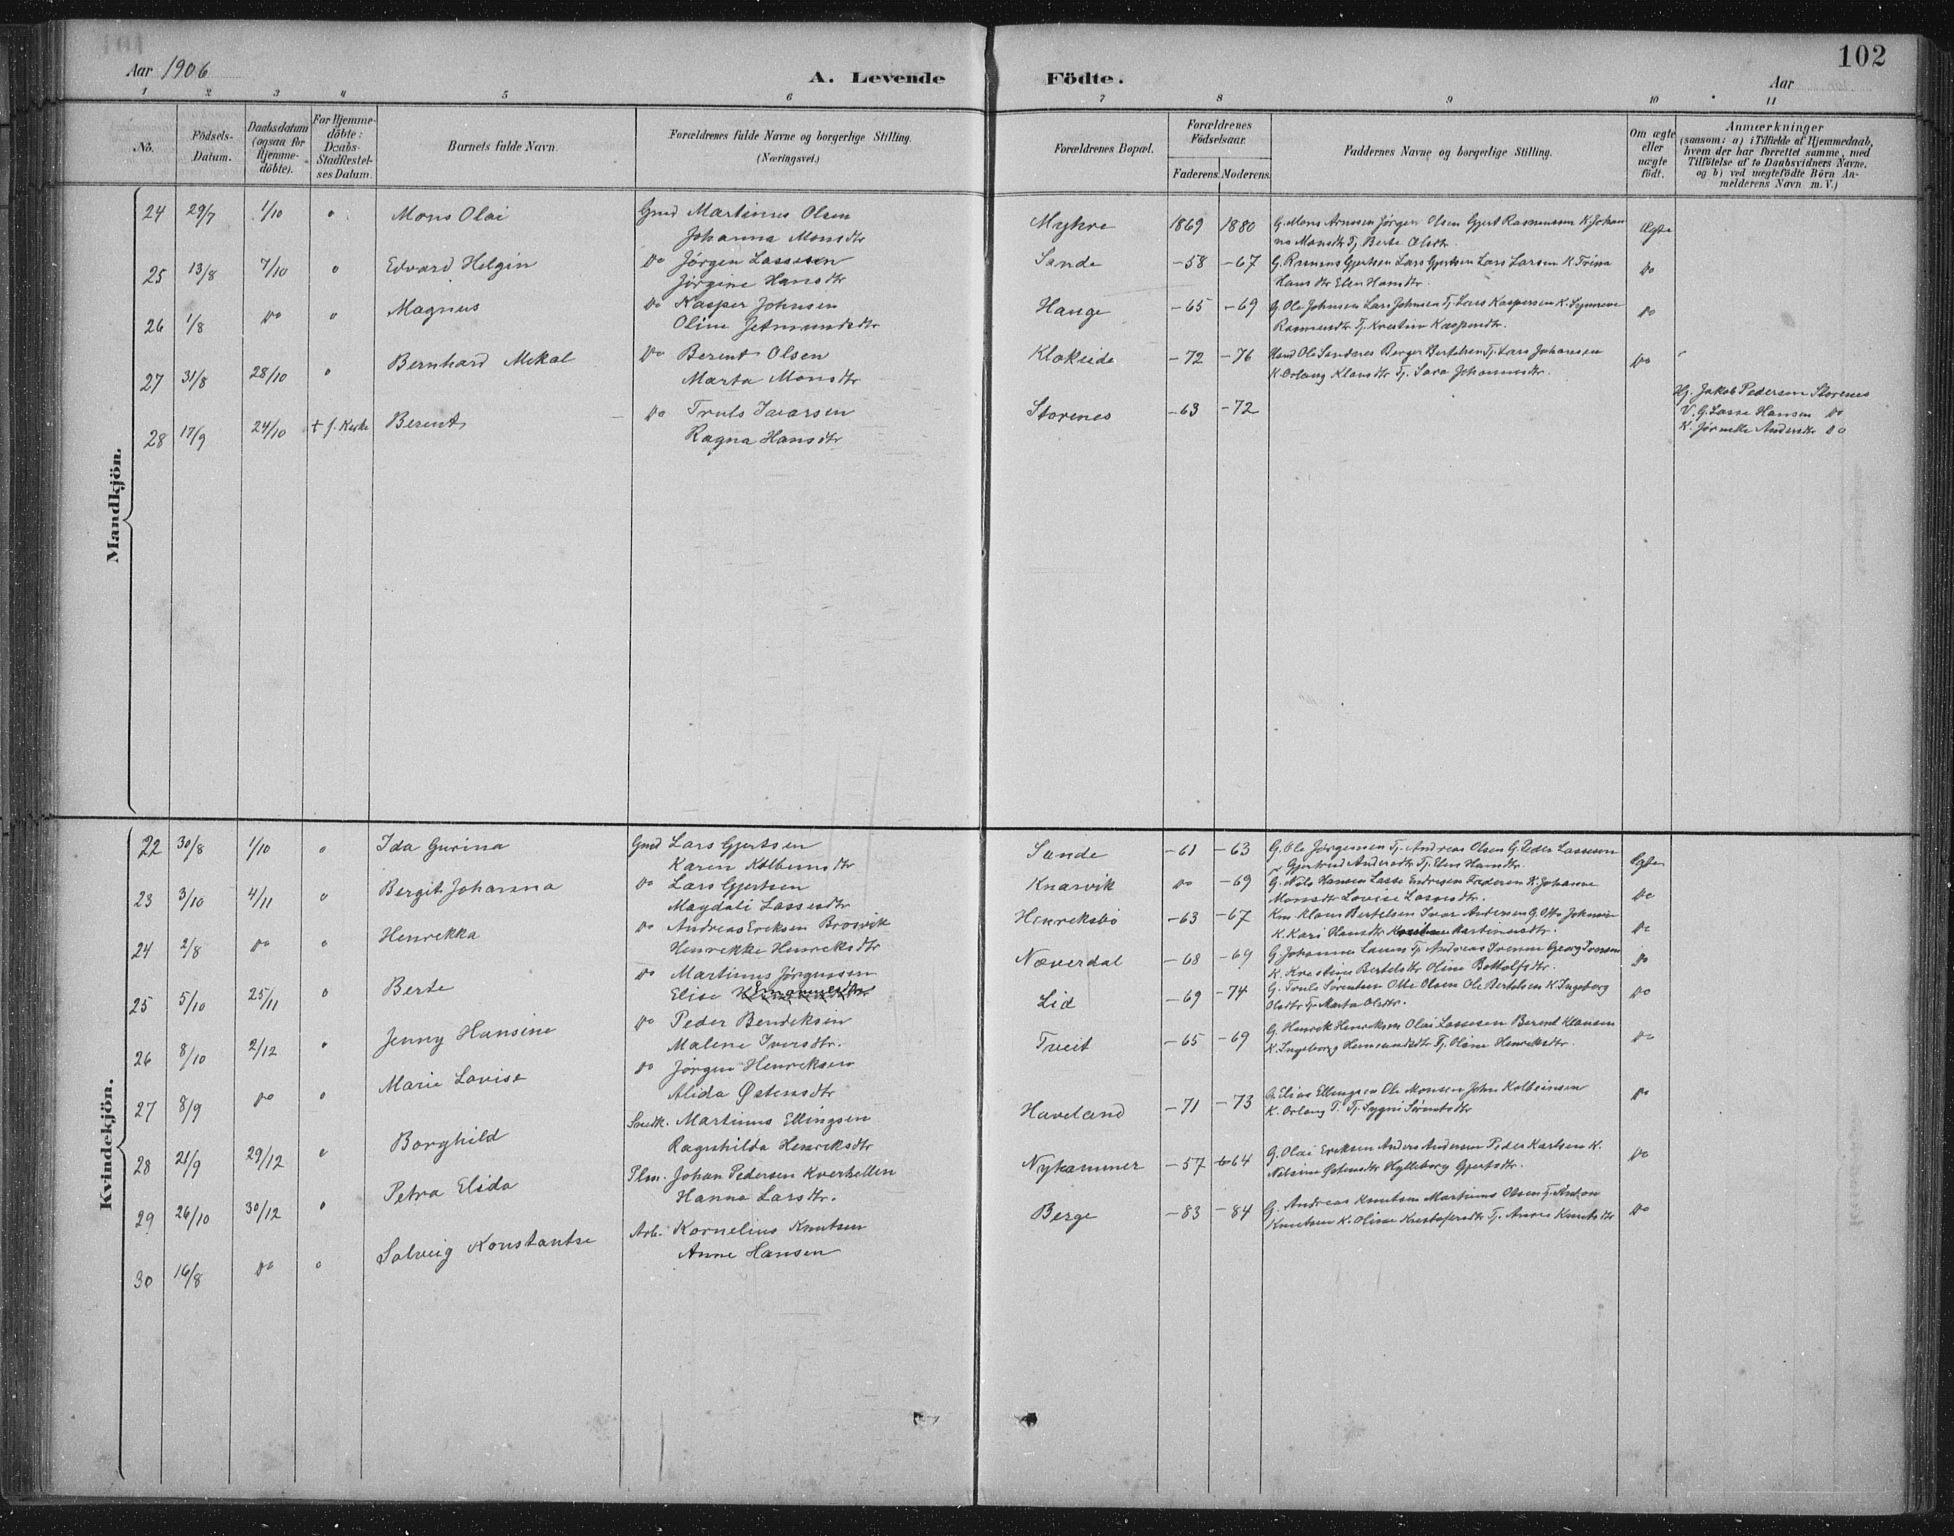 101
Aar 1906
A. Levende
Födte.
Aar
102
1 2 3 4 5 6 7 8 9 10 11
No.
Födsels-
Datum.
Daabsdatum
(ogsaa for
Hjemme-
döbte).
For Hjemme-
döbte:
Daabs-
Stadfæstel-
ses Datum.
Barnets fulde Navn.
Forældrenes fulde Navne og borgerlige Stilling.
(Næringsvei.)
Forældrenes Bopæl.
Forældrenes
Födselsaar.
Faderens. Moderens.
Faddernes Navne og borgerlige Stilling.
Om ægte
eller
uægte
født.
Anmærkninger
(saasom: a) i Tilfælde af Hjemmedaab,
hvem der har forrettet samme, med
Tilføielse af to Daabsvidners Navne,
og b) ved uægtefödte Börn An-
melderens Navn m. V.)
Mandkjön.
24 29/7 1/10 " Mons Olai Gmd Martinus Olsen Myhre 1869 1880 G. Mons Arnesen Jørgen Olsen Gjert Rasmussen K. Johan
Johanna Monsdtr na Monsdtr Tj. Berte Olsdtr. Ægte
25 13/8 7/10 " Edvard Helgin Do Jørgen Lassesen Sande -58 -67 G. Rasmus Gjertsen Lars Gjertsen Lars Larsen K. Trina
Jørgine Hansdtr Hansdtr Elen Hansdtr. Do
26 1/8 Do " Magnus Do Kasper Johnsen Hange -65 -69 G. Ole Johnsen Lars Johnsen Tj. Lars Kaspersen K. Synneve
Oline Jetmundsdtr Rasmusdtr Tj. Kristin Kaspersdtr. Do
27 31/8 28/10 " Bernhard Mikal Do Berent Olsen Klokeide -72 -76 Ole Sandnes Berger Bertelsen Tj. Lars Johansen
Marta Monsdtr K. Orlaug Klausdtr Tj. Sara Johannesdtr. Do
28 17/9 24/10 + f. Kirke Berent Do Truls Ivarsen Storenes -63 -72 Hj. Jakob Pedersen Storenes
Ragna Hansdtr V. G. Lasse Hansen Do
K. Andersdtr Do
Kvindekjön.
22 30/8 1/10 " Ida Gurina Gmd Lars Gjertsen Sande -61 -63 G. Ole Jørgensen Tj. Andreas Olsen G. Peder Lassesen
Karen Kolbensdtr Gjertrud Andersdtr Tj. Elen Hansdtr. Ægte
23 3/10 4/11 " Bergit Johanna Do Lars Gjertsen Knarvik Do -69 G. Nils Hansen Lasse Endresen Faderen K. Johanne
Magdali Lassesdtr Monsdtr Lovise Lassesdtr. Do
24 2/8 Do " Henrekka Do Andreas Eriksen Brosvik Henreksbö -63 -67 Km. Klaus Bertelsen Ivar Andersen G. Otto Johnsen
Henrekke Henreksdtr K. Kari Olausdtr Martinusdtr. Do
25 5/10 25/11 " Berte Do Martinus Jørgensen Næverdal -68 -69 G. Johannes Larsen Tj. Andreas Iversen Georg Iversen
Elise K. Kristine Bertelsdtr Oline Bottolfsdtr. Do
26 8/10 2/12 " Jenny Hansine Do Peder Bendiksen Lid -69 -74 G. Truls Sørensen Otte Olsen Ole Bertelsen K. Ingeborg
Malene Iversdtr. Olsdtr Tj. Marta Olsdtr. Do
27 8/9 Do " Marie Lovise Do Jørgen Henreksen Tveit -65 -69 G. Henrik Henriksen Olai Lassesen Berent Klausen
Alida Østensdtr K. Ingeborg Hermundsdtr Tj. Oline Henreksdtr. Do
28 21/9 29/12 " Borghild Snedk. Martinus Ellingsen Haveland -71 -73 G. Elias Ellingsen Ole Monsen John Kolbeinsen
Ragnhilda Henreksdtr K. Orlaug T. Tj. Sygni Sörensdtr Do
29 26/10 30/12 " Petra Elida Plm. Johan Pedersen Kverhellen Nyhammer -57 -64 G. Olai Eriksen Anders Andersen Peder Karlsen K.
Hanna Larsdtr. Nilsine Østensdtr Hylleborg Gjertsdtr. Do
30 16/8 Do " Solveig Konstantse Arb. Kornelius Knutsen Berge -83 -84 G. Andreas Knutsen Martinus Olsen Tj. Anton
Anne Hansen Knutsen K. Oline Kristofersdtr Tj. Anne Knutsdtr Do